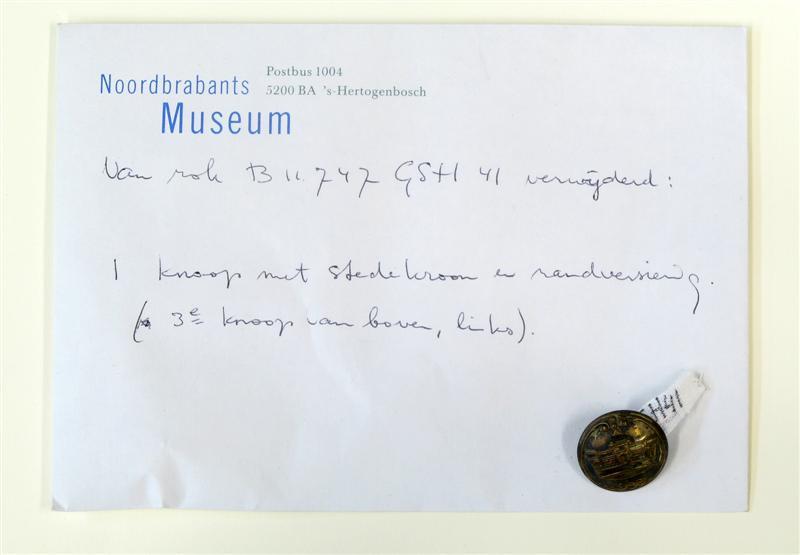 Noordbrabants
Museum
Postbus 1004
5200 BA 's-Hertogenbosch
Van rok B 11.747 GSH 41 verwijderd:
1 knoop met stedekroon en randversiering.
( 3e knoop van boven, links).